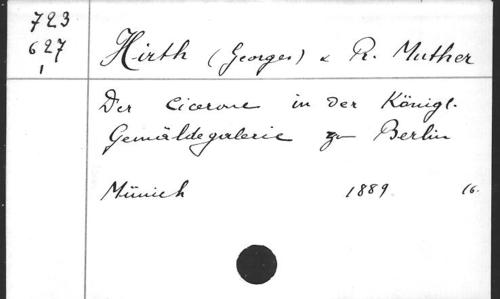 723
627
1
Hirth (Georges) & R. Muther
Der Cicerone in der Königl.
Gemäldegalerie zu Berlin
Münich 1889 16.